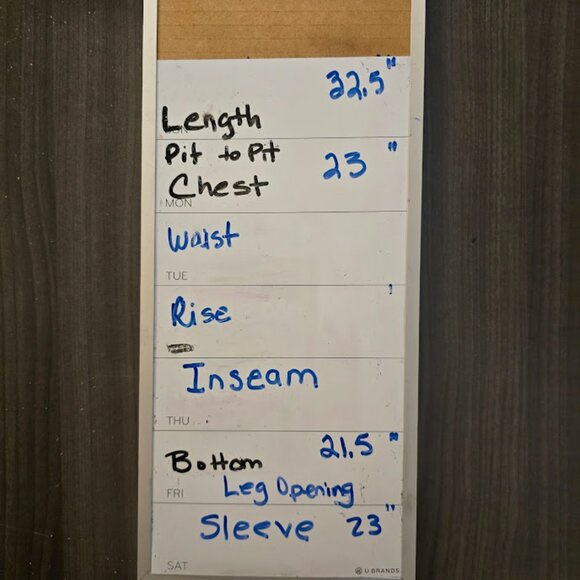 32.5"
Length
Pit to Pit
23"
Chest
MON
Waist
TUE
Rise
Inseam
THU
21.5"
Bottom
FRI
Leg Opening
Sleeve 23"
SAT
U BRANDS